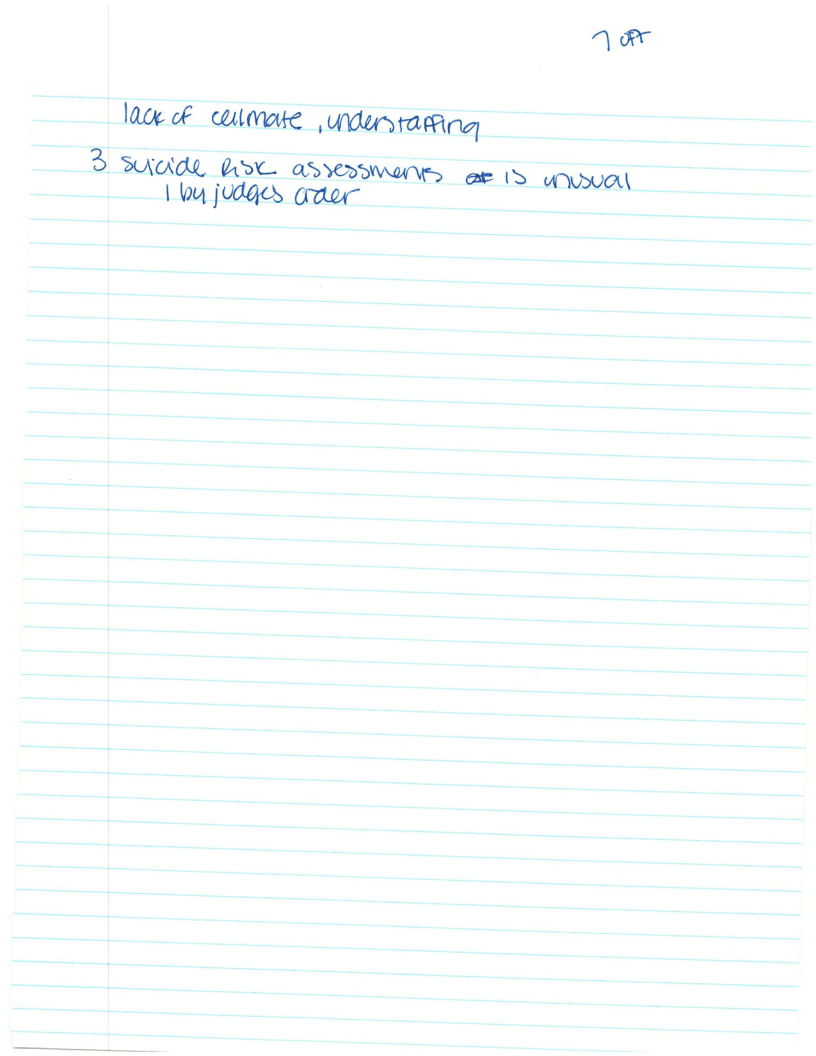 7 of 7
lack of cellmate, understaffing
3 suicide risk assessments is unusual
1 by judges order